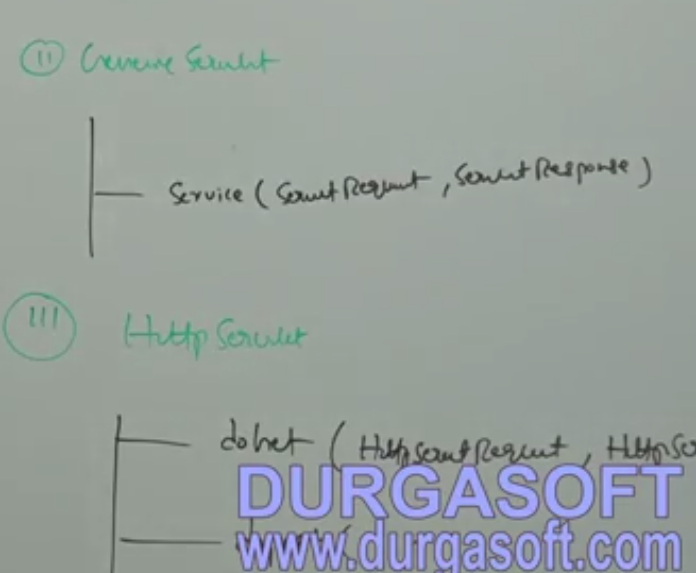 (II) Generic Servlet
Service ( Servlet Request , Servlet Response )
(III) Http Servlet
doGet ( Http Servlet Request , Http Se
DURGASOFT
www.durgasoft.com